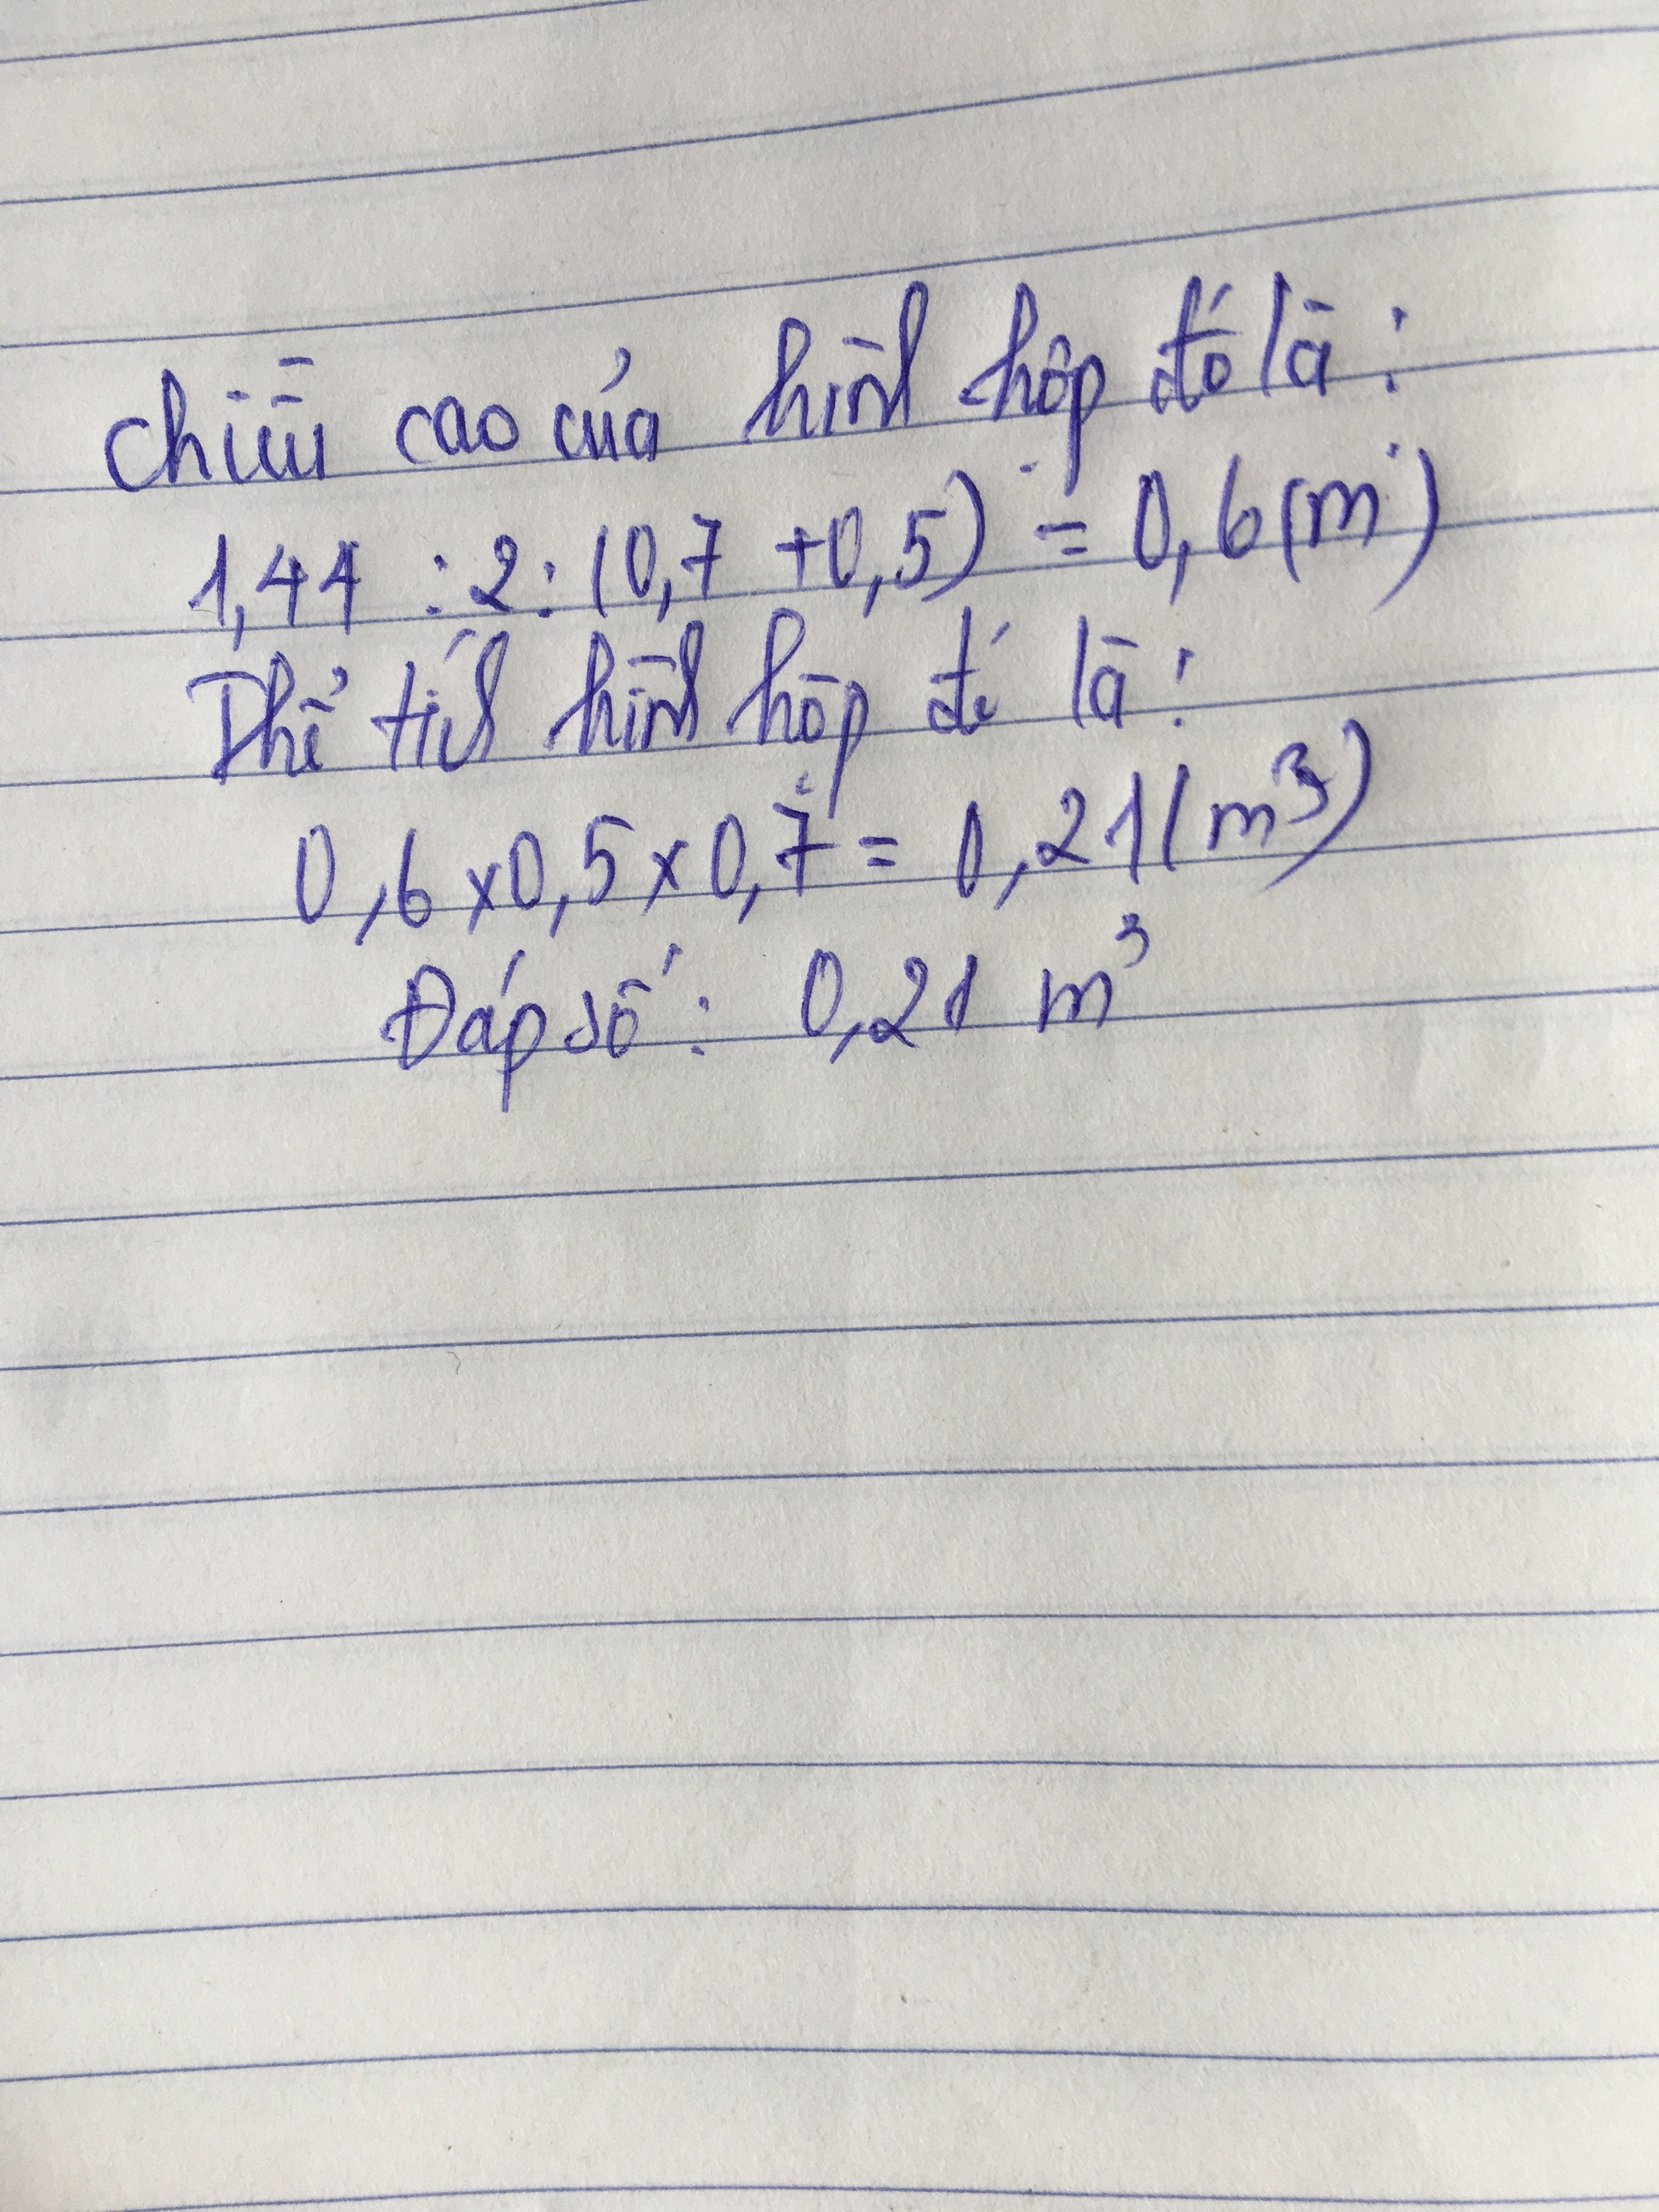 Chiều cao của hình hộp đó là:
1,44 : 2 : (0,7 + 0,5) = 0,6 (m)
Thể tích hình hộp đó là:
0,6 x 0,5 x 0,7 = 0,21 (m³)
Đáp số: 0,21 m³